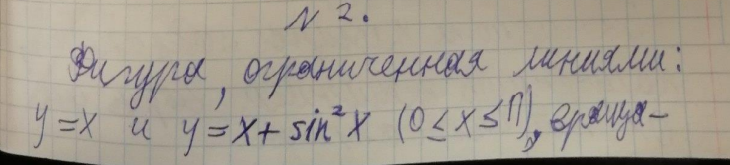 N 2.
Фигура, ограниченная линиями:
y = x и y = x + sin² x (0 ≤ x ≤ П), враща-